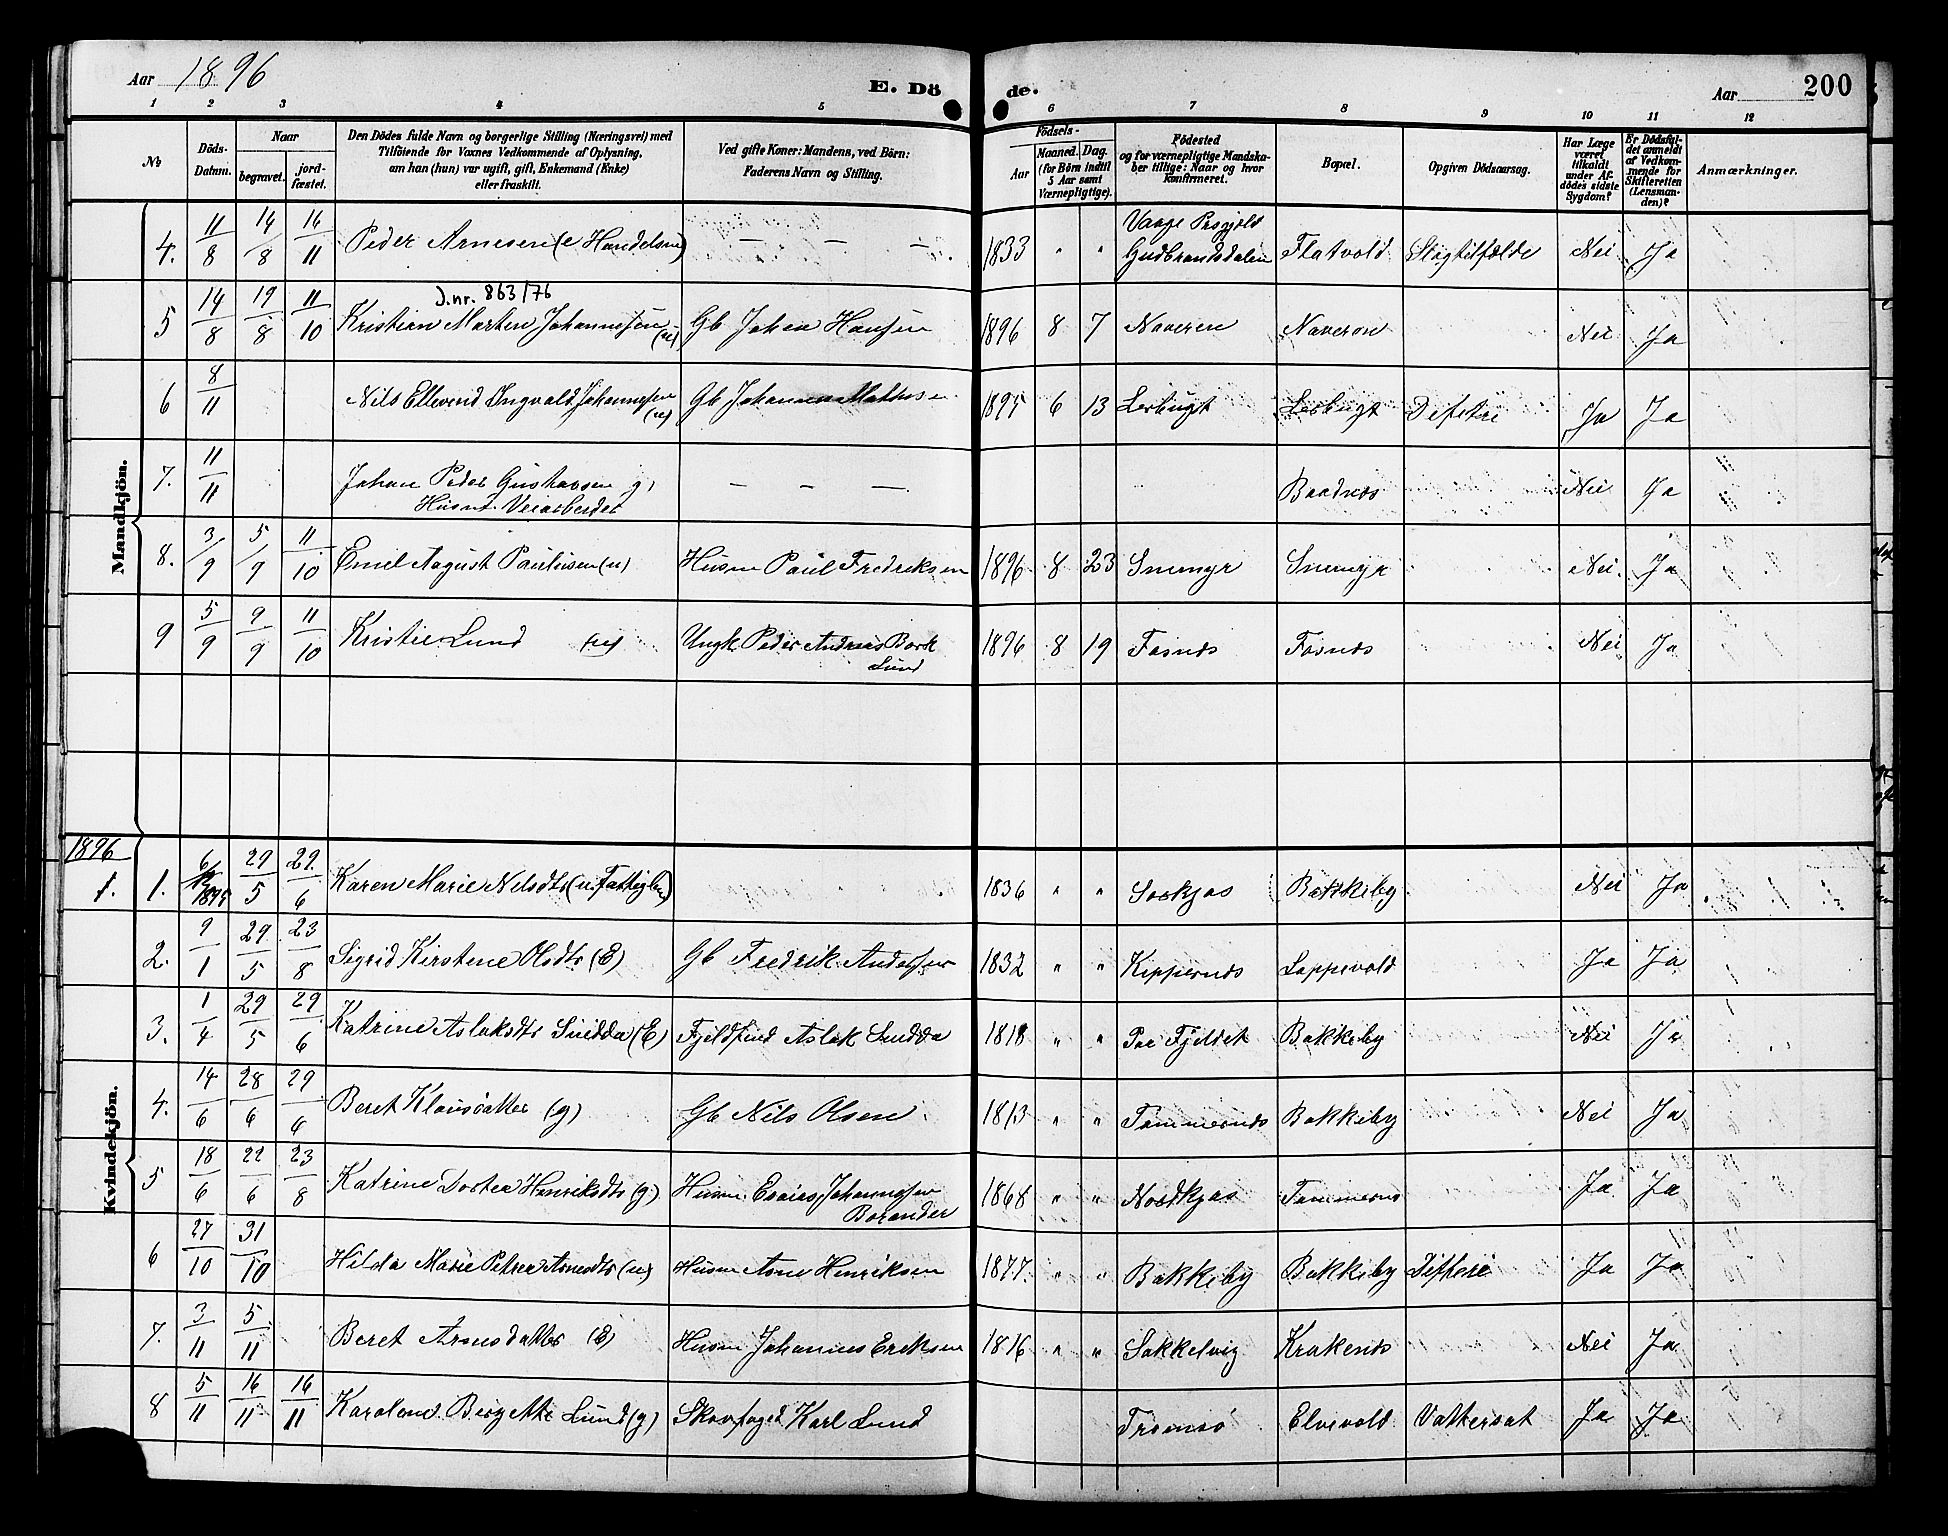 Aar 1896
E. Döde.
Aar
200
1 2 3 4 5 6 7 8 9 10 11 12
№
Döds-Datum.
Naar
begravet.
jordfæstet.
Den Dödes fulde Navn og borgerlige Stilling (Næringsvei) med
Tilföiende for Voxnes Vedkommende af Oplysning,
om han (hun) var ugift, gift, Enkemand (Enke)
eller fraskilt.
Ved gifte Koner: Mandens, ved Börn:
Faderens Navn og Stilling.
Födsels-
Aar
Maaned. Dag.
(for Börn indtil
5 Aar samt
Værnepligtige).
Födested
og for værnepligtige Mandskaber tillige: Naar og hvor
konfirmeret.
Bopæl.
Opgiven Dödsaarsag.
Har Læge
været
tilkaldt
under Afdödes sidste
Sygdom?
Er Dödsfaldet anmeldt
af Vedkommende for
Skifteretten
(Lensmanden)?
Anmærkninger.
Mandkjön.
4. 11/8 14/8 16/11 Peder Arnesen (e Handelsm) — — — 1833 " " Vaage Prsgjeld Gudbrandsdalen Flatvold Slagtilfælde Nei Ja
J.nr. 863/76
5 14/8 19/8 11/10 Kristian Morten Johannessen (u) Gb Johan Hansen 1896 8 7 Naveren Naveren Nei Ja
6 8/11 Nils Ellevend Ingvald Johannessen (u) Gb Johannes Mathisen 1895 6 13 Lerbugt Lerbugt Difteri Ja Ja
7. 11/11 Johan Peder Gustavsen g, — — — Baadnes Nei Ja
Husm. Veiarbeider
8. 3/9 5/9 11/10 Emil August Paulusen (u) Husm Paul Fredriksen 1896 8 23 Snemyr Snemyr Nei. Ja
9 5/9 9/9 11/10 Kristie Lund (u) Ungk. Peder Andreas Bork Lund 1896 8 19 Fosnes Fosnes Nei Ja
1896
Kvindekjön.
1. 1. 6/12 1895 29/5 29/6 Karen Marie Nilsdtr (u. Fattiglem) 1836 " " Sørkjos Bakkeby Nei Ja
2. 9/1 29/5 23/8 Sigrid Kirstine Olsdtr (E) Gb Fredrik Anderssen 1832 " " Kippernes Lappevold Ja Ja
3. 1/4 29/5 29/6 Katrine Aslaksdtr Snedda (E) Fjeldfind Aslak Snedda 1818 " " Paa Fjeldet Bakkeby Nei Ja
4. 14/6 28/6 29/6 Beret Klausdatter (g) Gb Nils Olsen 1813 " " Tømmernes Bakkeby Nei Ja
5 18/6 22/6 23/8 Katrine Dortea Henriksdtr (g.) Husm. Esaias Johannessen Borander 1868 " " Nordkjos Tømmernes Ja Ja
6 27/10 31/10 Hilda Marie Petrea Arnesdtr (u) Husm Arne Henriksen 1877 " " Bakkeby Bakkeby Difteri Ja Ja
7. 3/11 5/11 Beret Arnesdatter (E) Husm Johannes Eriksen 1816 " " Sakkelvig Krakenes Nei Ja
8 5/11 16/11 16/11 Karoline Bergette Lund (g) Skovfoged Karl Lund Tromsø Elvevold Vattersot Ja Ja